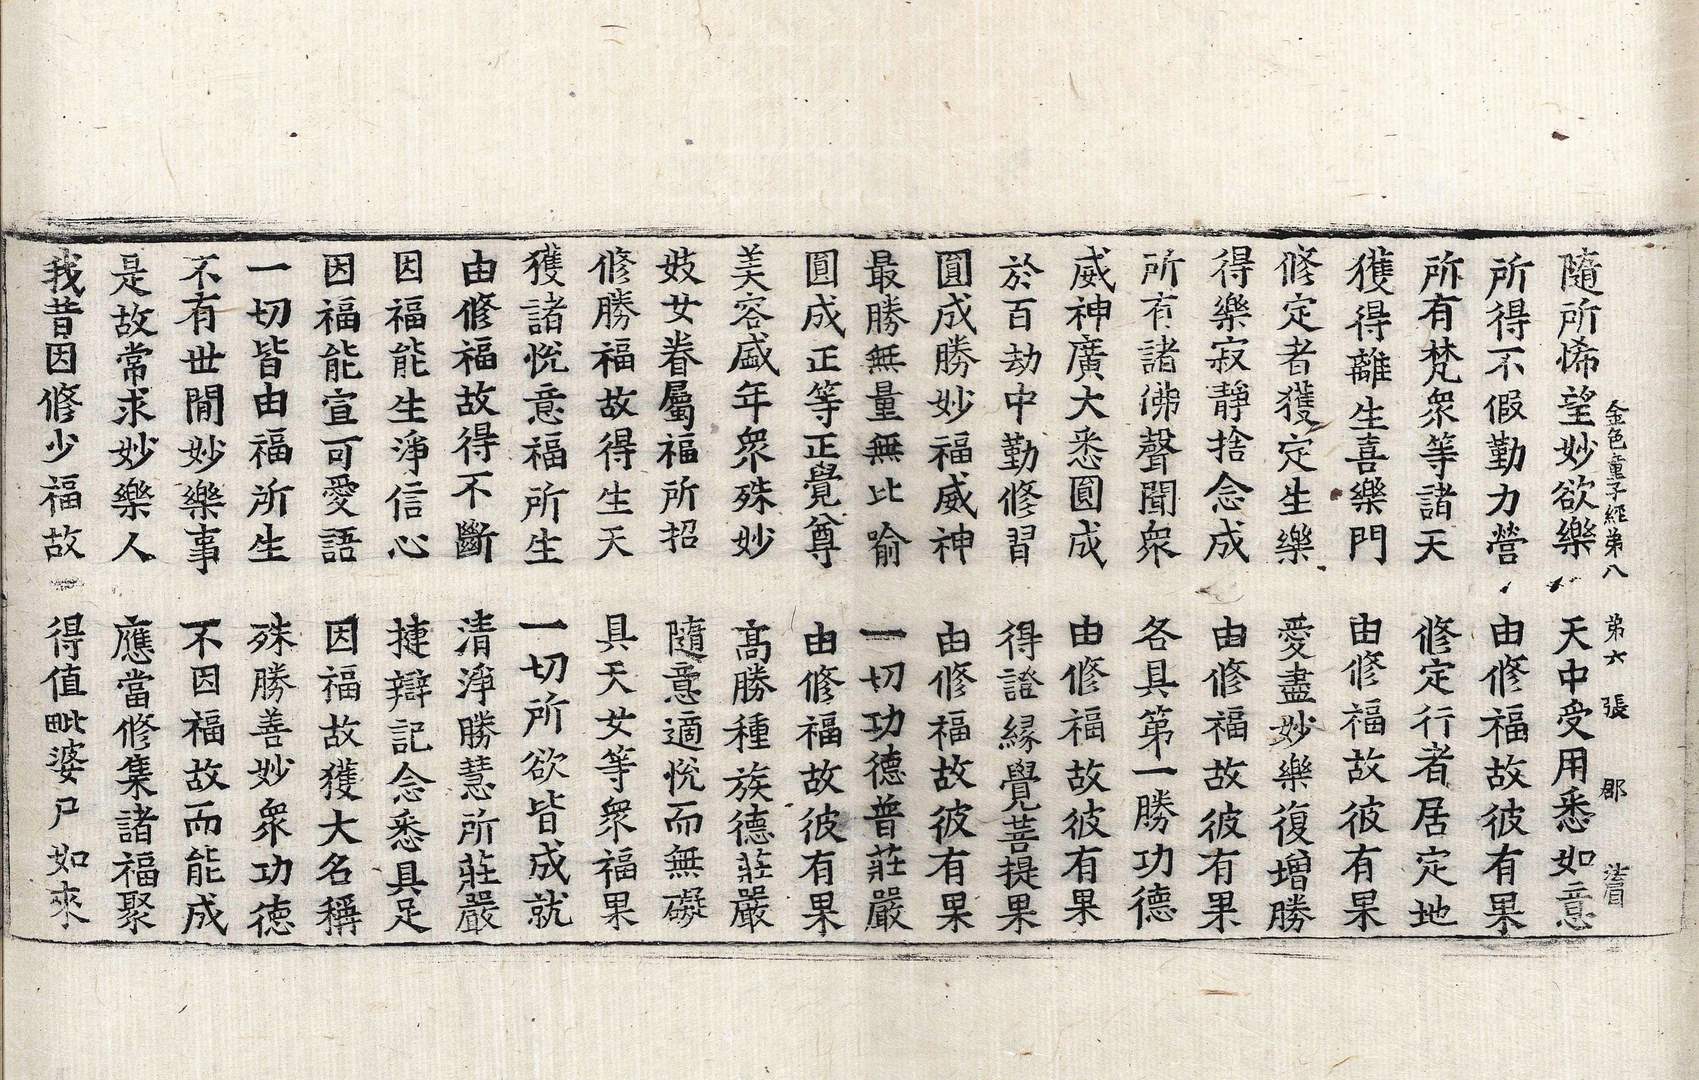 金色童子經第八　第六張　郡　法眉
隨所悕望妙欲樂　天中受用悉如意
所得不假勤力營　由修福故彼有果
所有梵衆等諸天　修定行者居定地
獲得離生喜樂門　由修福故彼有果
修定者獲定生樂　愛盡妙樂復增勝
得樂寂靜捨念成　由修福故彼有果
所有諸佛聲聞衆　各具第一勝功德
威神廣大悉圓成　由修福故彼有果
於百劫中勤修習　得證緣覺菩提果
圓成勝妙福威神　由修福故彼有果
最勝無量無比喻　一切功德普莊嚴
圓成正等正覺尊　由修福故彼有果
美容盛年衆殊妙　高勝種族德莊嚴
妓女眷屬福所招　隨意適悅而無礙
修勝福故得生天　具天女等衆福果
獲諸悅意福所生　一切所欲皆成就
由修福故得不斷　清淨勝慧所莊嚴
因福能生淨信心　捷辯記念悉具足
因福能宣可愛語　因福故獲大名稱
一切皆由福所生　殊勝善妙衆功德
不有世間妙樂事　不因福故而能成
是故常求妙樂人　應當修集諸福聚
我昔因修少福故　得值毗婆尸如來